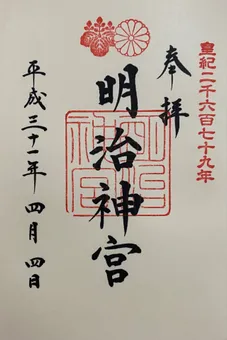 皇紀二千六百七十九年
奉拝
明治神宮
平成三十一年 四月 四日
明治神宮